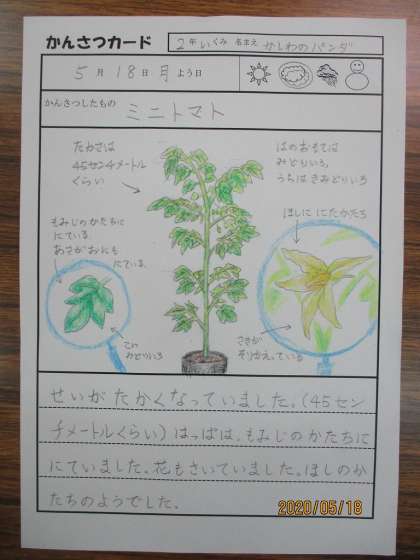 かんさつカード
2年 いくみ 名まえ かしわのパンダ
5月18日月よう日
かんさつしたもの ミニトマト
たかさは
45センチメートル
くらい
はのおもては
みどりいろ、
うらはきみどりいろ
もみじのかたちに
にている
あさがおにも
にている
ほしににたかたち
こい
みどりいろ
さきが
そりかえっている
せいがたかくなっていました。(45セン
チメートルくらい)はっぱは、もみじのかたちに
にていました。花もさいていました。ほしのか
たちのようでした。
2020/05/18